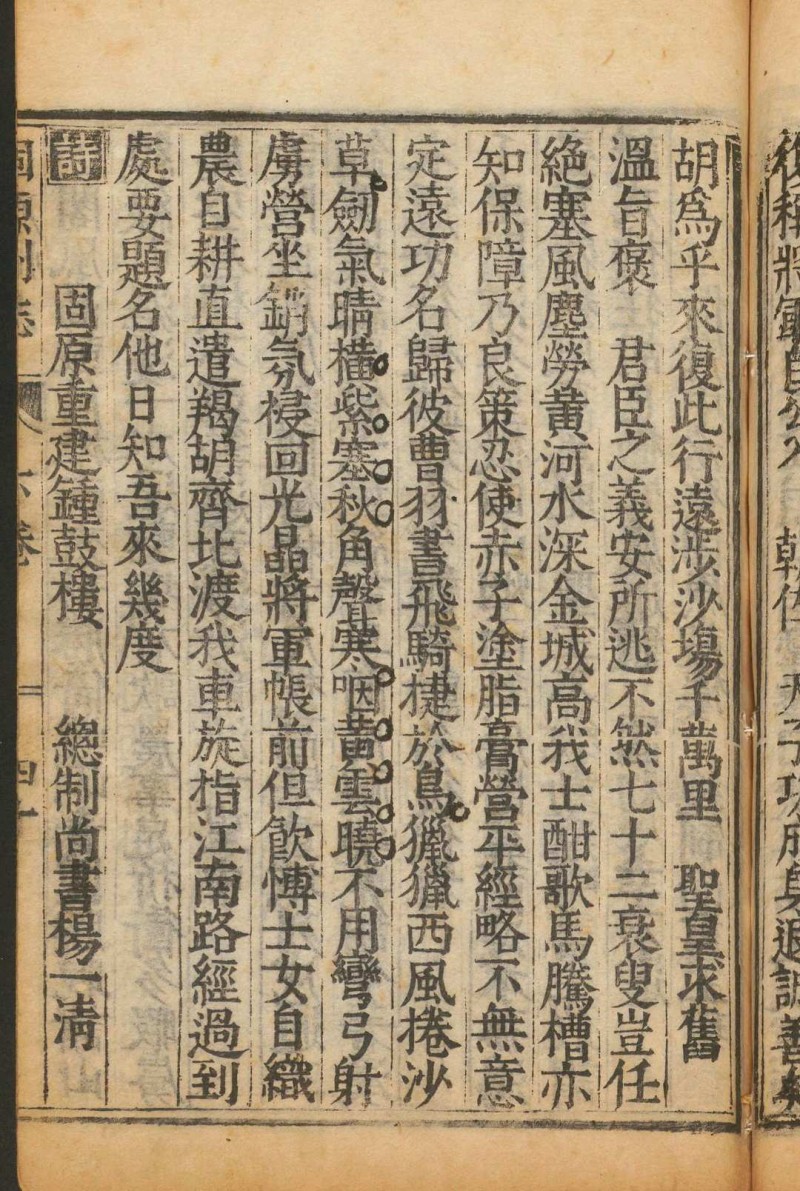 胡爲乎來復此行遠涉沙塲千萬里　聖皇求舊
溫旨褒　君臣之義安所逃不然七十二衰叟豈任
絶塞風塵勞黄河水深金城高我士酣歌馬騰槽亦
知保障乃良策忍使赤子塗脂膏營平經略不無意
定遠功名歸彼曹羽書飛騎捷於鳥獵獵西風捲沙
草劒氣晴橫紫塞秋角聲寒咽黄雲曉不用彎弓射
虜營坐銷氛祲回光晶將軍帳前但飲博士女自織
農自耕直遣羯胡齊北渡我車旋指江南路經過到
處要題名他日知吾來幾度
固原重建鍾鼓樓　總制尚書楊一淸